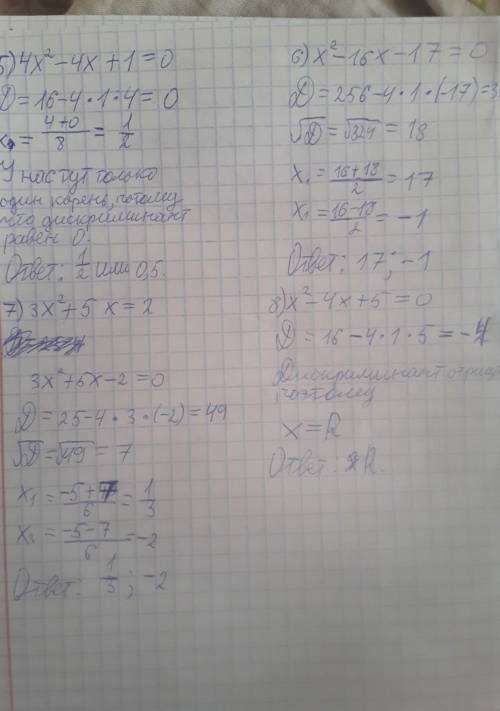 5) 4x² - 4x + 1 = 0
D = 16 - 4 * 1 * 4 = 0
x₁ = (4+0)/8 = 1/2
У нас тут только
один корень, потому
что дискриминант
равен 0.
Ответ: 1/2 или 0,5.
7) 3x² + 5x = 2
3x² + 5x - 2 = 0
D = 25 - 4 * 3 * (-2) = 49
√D = √49 = 7
x₁ = (-5+7)/6 = 1/3
x₂ = (-5-7)/6 = -2
Ответ: 1/3 ; -2
6) x² - 16x - 17 = 0
D = 256 - 4 * 1 * (-17) = 3
√D = √324 = 18
x₁ = (16+18)/2 = 17
x₁ = (16-18)/2 = -1
Ответ: 17 ; -1
8) x² - 4x + 5 = 0
D = 16 - 4 * 1 * 5 = -4
Дискриминант
x = R
Ответ: R.